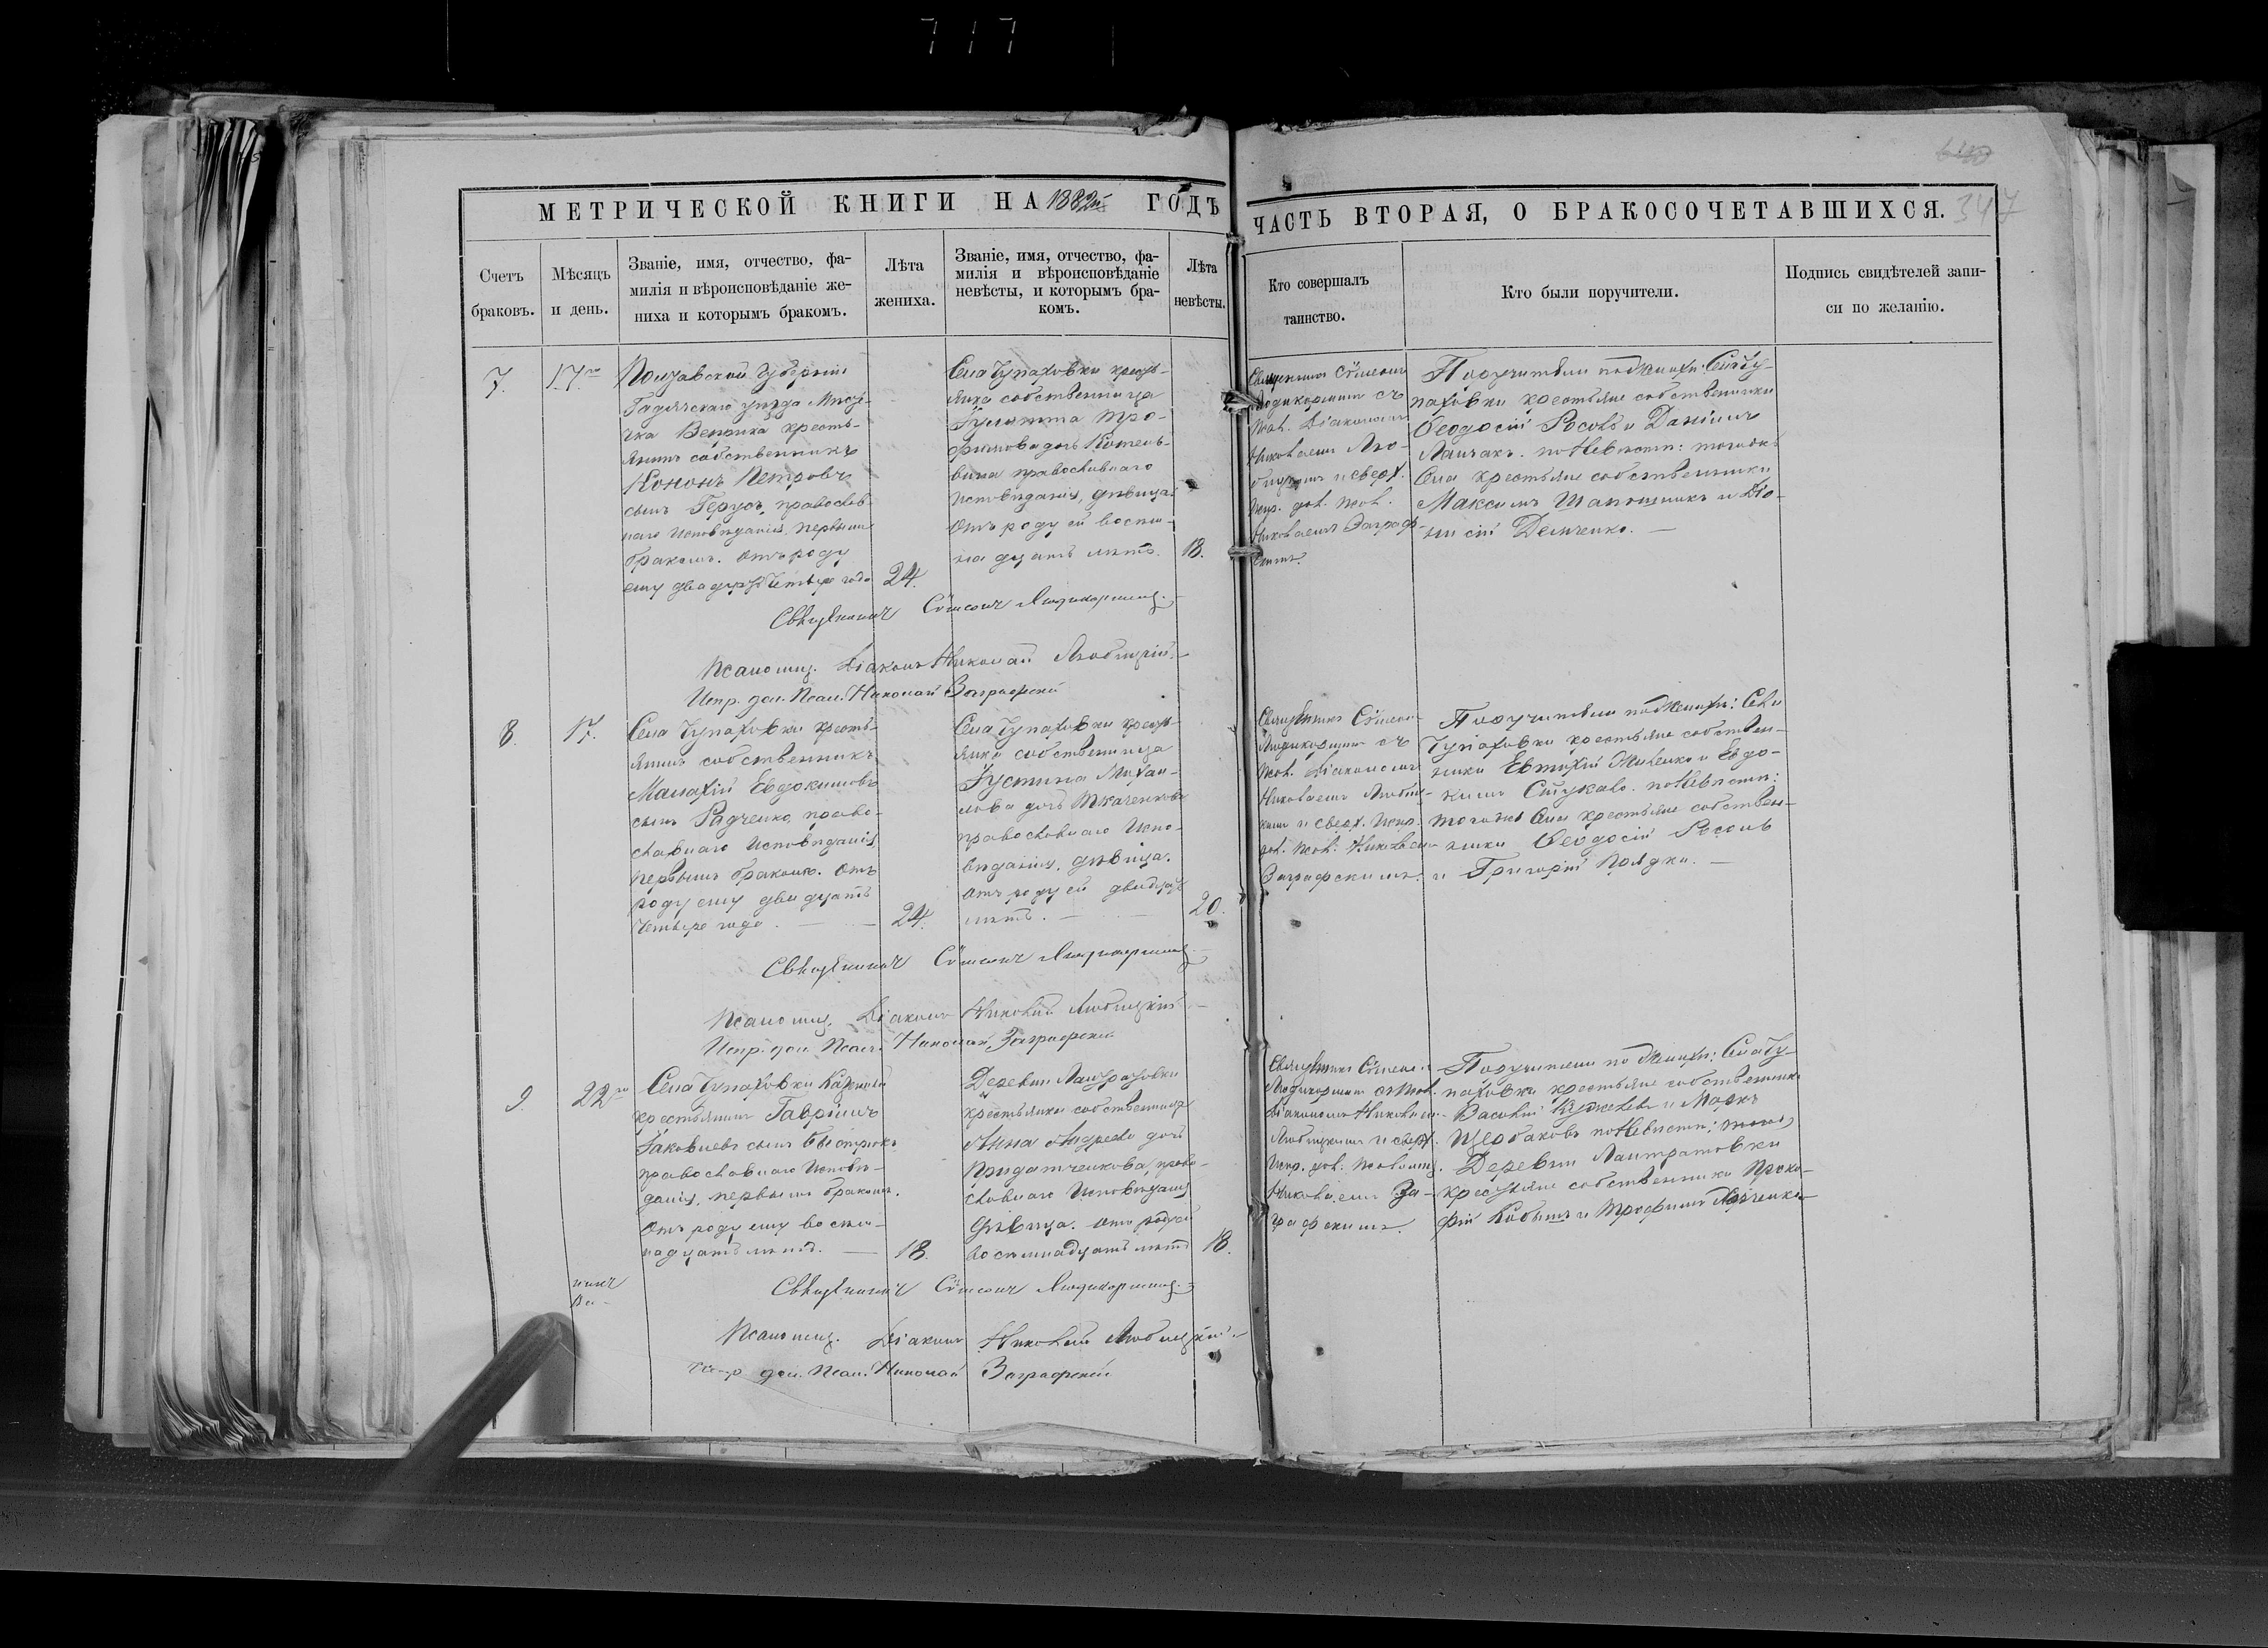 717
МЕТРИЧЕСКОЙ КНИГИ НА 1882й ГОДЪ
Счетъ
браковъ.
Мѣсяцъ
и день.
Званіе, имя, отчество, фа-
милія и вѣроисповѣданіе же-
ниха и которымъ бракомъ.
Лѣта
жениха.
Званіе, имя, отчество, фа-
милія и вѣроисповѣданіе
невѣсты, и которымъ бра-
комъ.
Лѣта
невѣсты.
7.
17го
Полтавской Губерніи
Гадячскаго уѣзда Мѣсте-
чка Веприка кресть-
янинъ собственникъ
Кононъ Петровъ
сынъ Герусъ, православ-
наго исповѣданія, первымъ
бракомъ. Отъ роду
ему двадцать четыре года
24.
Села Чупаховки кресть-
янка собственница
Іулитта Тро-
фимова дочь
православнаго
исповѣданія, дѣвица.
Отъ роду ей восем-
надцать лѣтъ.
18.
Священникъ Сѵмеонъ
Псаломщ. Діаконъ Николай Любицкій
Испр. дол. Псал. Николай Заграфскій
8.
17.
Села Чупаховки кресть-
янинъ собственникъ
Малахій Евдокимовъ
сынъ Радченко, право-
славнаго исповѣданія
первымъ бракомъ. Отъ
роду ему двадцать
четыре года.
24.
Села Чупаховки кресть-
янка собственница
Іустина Михаи-
лова дочь Ткаченкова
православнаго испо-
вѣданія, дѣвица.
Отъ роду ей двадцать
лѣтъ.
20.
Священникъ Сѵмеонъ
Псаломщ. Діаконъ Николай Любицкій
Испр. дол. Псал. Николай Заграфскій
9.
22го
Села Чупаховки Казенный
крестьянинъ Гавріилъ
Іаковлевъ сынъ
православнаго исповѣ-
данія, первымъ бракомъ.
Отъ роду ему восем-
надцать лѣтъ.
18.
Деревни Лантратовки
крестьянка собственница
Анна Андреева дочь
Придатченкова, право-
славнаго исповѣданія
дѣвица. Отъ роду ей
восемнадцать лѣтъ
18.
Священникъ Сѵмеонъ
Псаломщ. Діаконъ Николай Любицкій
Испр. дол. Псал. Николай Заграфскій
347
ЧАСТЬ ВТОРАЯ, О БРАКОСОЧЕТАВШИХСЯ.
Кто совершалъ
таинство.
Кто были поручители.
Подпись свидѣтелей запи-
си по желанію.
Священникъ Сѵмеонъ
съ
Псал. Діакономъ
Николаемъ Лю-
бицкимъ и сверх.
Испр. дол. Псал.
Николаемъ Заграф-
скимъ.
Поручители по Женихѣ: Села Чу-
паховки крестьяне собственники
Ѳеодосій Росолъ и Даніилъ
по Невѣстѣ: тогожъ
Села крестьяне собственники
Максимъ и Діо-
нисій Демченко.
Священникъ Сѵмеонъ
съ
Псал. Діакономъ
Николаемъ Любиц-
кимъ и сверх. Испр.
дол. Псал. Николаемъ
Заграфскимъ.
Поручители по Женихѣ: Села
Чупаховки крестьяне собствен-
ники Евтихій и Евдо-
кимъ по Невѣстѣ:
тогожъ Села крестьяне собствен-
ники Ѳеодосій Росолъ
и Григорій
Священникъ Сѵмеонъ
съ Псал.
Діакономъ Николаемъ
Любицкимъ и сверх.
Испр. дол. Псаломщ.
Николаемъ За-
графскимъ.
Поручители по Женихѣ: Села Чу-
паховки крестьяне собственники
Василій и Маркъ
Щербаковъ по Невѣстѣ;
Деревни Лантратовки
крестьяне собственники Проко-
фій и Трофимъ